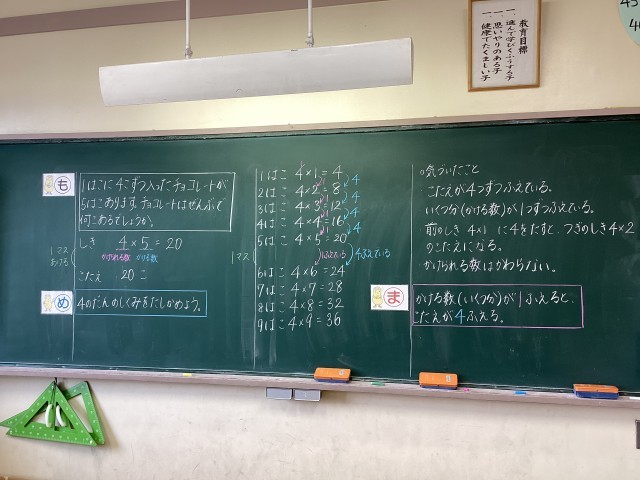 教育目標
一、進んで学びくふうする子
一、思いやりのある子
一、健康でたくましい子
45
も
1はこに4こずつ入ったチョコレートが
5はこあります。チョコレートはぜんぶで
何こあるでしょうか。
しき 4×5=20
かけられる数 かける数
1マス
あける
こたえ 20こ
め
4のだんのしくみをたしかめよう。
1はこ 4×1=4
2はこ 4×2=8
3はこ 4×3=12
4はこ 4×4=16
5はこ 4×5=20
1マス
1ふえている
4ふえている
6はこ 4×6=24
7はこ 4×7=28
8はこ 4×8=32
9はこ 4×9=36
4
4
4
4
○気づいたこと
こたえが4つずつふえている。
いくつ分(かける数)が1つずつふえている。
前のしき 4×1 に4をたすと、つぎのしき4×2
のこたえになる。
かけられる数はかわらない。
ま
かける数(いくつ分)が1ふえると、
こたえが4ふえる。